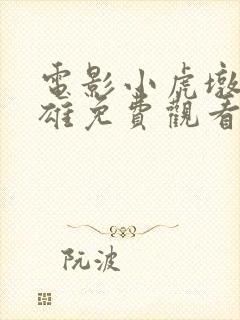 電影小虎墩
雄免費觀看
阮波